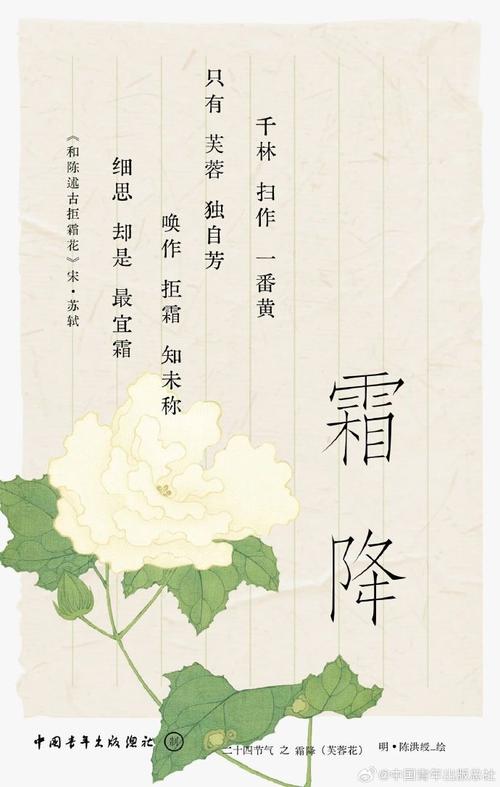 霜降
千林 扫作 一番黄
只有 芙蓉 独自芳
唤作 拒霜 知未称
细思 却是 最宜霜
《和陈述古拒霜花》宋·苏轼
中国青年出版总社 制
二十四节气 之 霜降（芙蓉花） 明·陈洪绶_绘
@中国青年出版总社